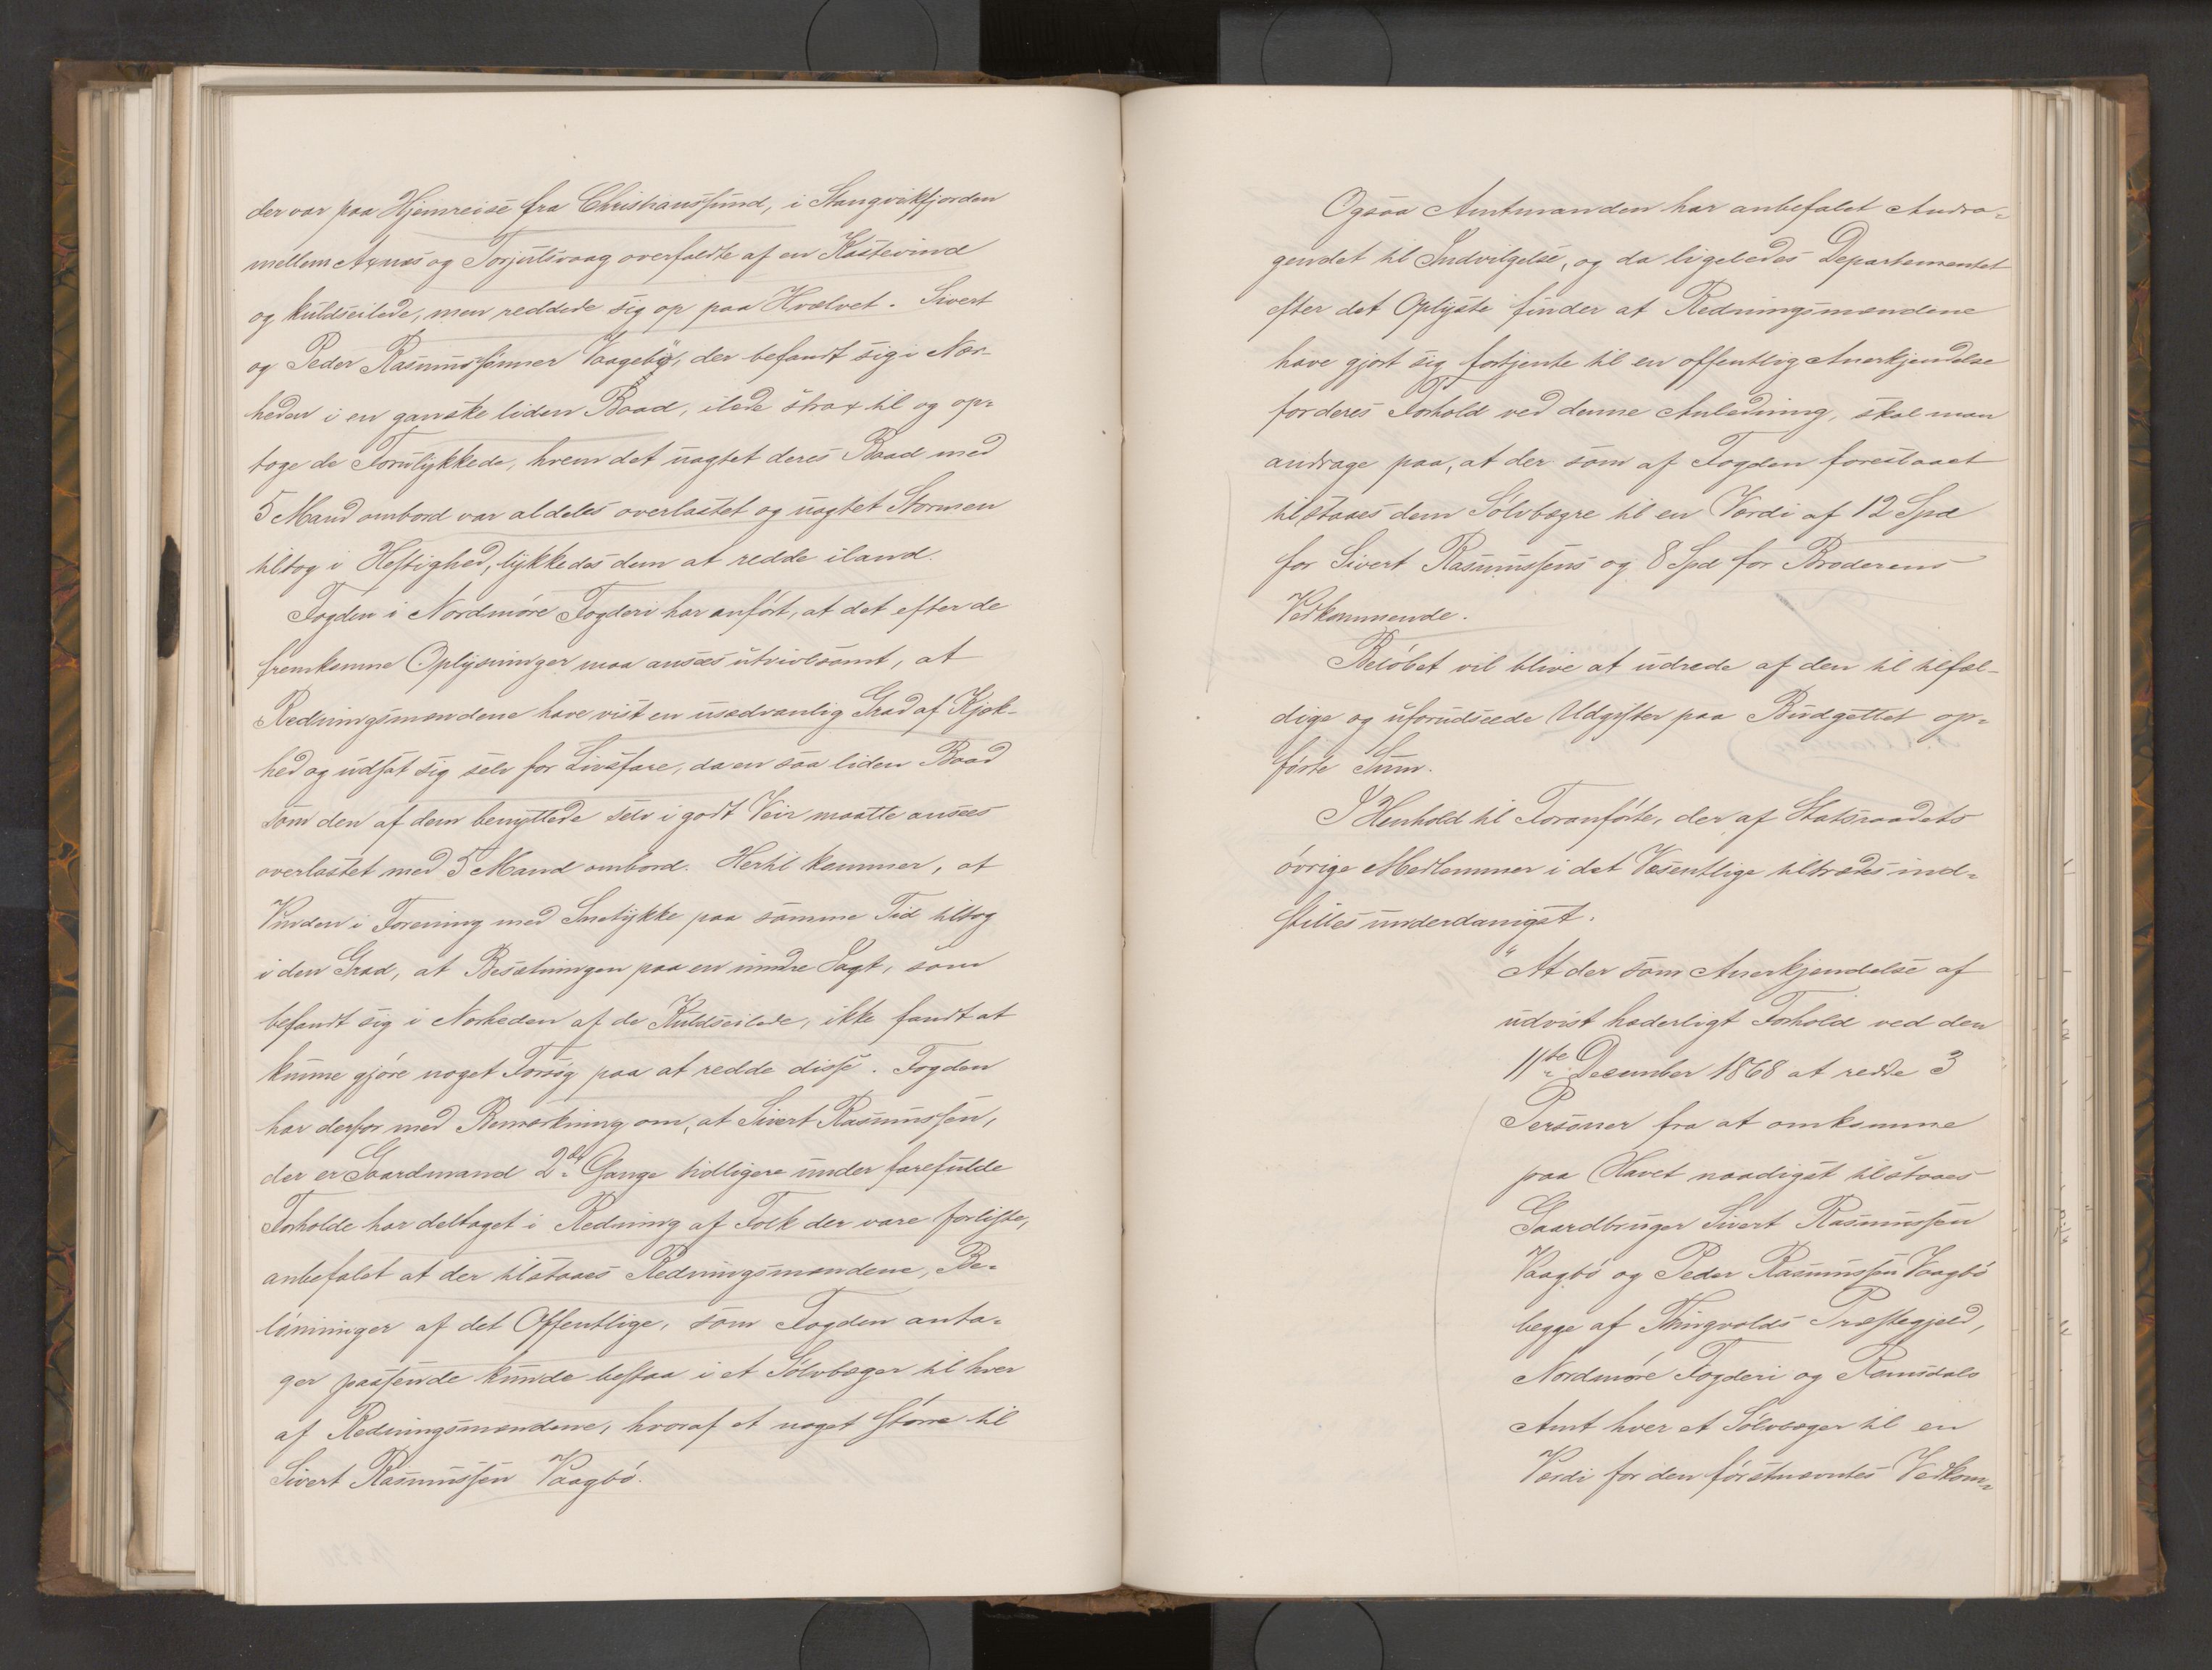 der var paa Hjemreise fra Christianssund, i Stangvikfjorden
mellem Axnæs og Torjulsvaag overfaldte af en Kastevind
og kuldseilede, men reddede sig op paa Hvælvet. Sivert
og Peder Rasmussønner Vaagebø, der befandt sig i Nær-
heden i en ganske liden Baad, ilede strax til og op-
toge de Forulykkede, hvem det uagtet deres Baad med
5 Mand ombord var aldeles overlastet og uagtet Stormen
tiltog i Heftighed, lykkedes dem at redde iland.
Fogden i Nordmøre Fogderi har anført, at det efter de
fremkomne Oplysninger maa ansees utvivlsomt, at
Redningsmændene have vist en usædvanlig Grad af Kjæk-
hed og udsat sig selv for Livsfare, da en saa liden Baad
som den af dem benyttede selv i godt Veir maatte ansees
overlastet med 5 Mand ombord. Hertil kommer, at
Vinden i Forening med Snetykke paa samme Tid tiltog
i den Grad, at Besætningen paa en mindre Jagt, som
befandt sig i Nærheden af de Kuldseilede, ikke fandt at
kunne gjøre noget Forsøg paa at redde disse. Fogden
har derfor med Bemærkning om, at Sivert Rasmussen,
der er Gaardmand 2de Gange tidligere under farefulde
Forholde har deltaget i Redning af Folk der vare forliste,
anbefalet at der tilstaaes Redningsmændene, Be-
lønninger af det Offentlige, som Fogden anta-
ger passende kunde bestaa i et Sølvbæger til hver
af Redningsmændene, hvoraf et noget større til
Sivert Rasmussen Vaagbø.
Ogsaa Amtmanden har anbefalet Andra-
gendet til Indvilgelse, og da ligeledes Departementet
efter det Oplyste finder at Redningsmændene
have gjort sig fortjente til en offentlig Anerkjendelse
for deres Forhold ved denne Anledning, skal man
andrage paa, at der som af Fogden foreslaaet
tilstaaes dem Sølvbægre til en Værdi af 12 Spd
for Sivert Rasmussens og 8 Spd for Broderens
Vedkommende.
Beløbet vil blive at udrede af den til tilfæl-
dige og uforudseede Udgifter paa Budgettet op-
førte Sum.
I Henhold til Foranførte, der af Statsraadets
øvrige Medlemmer i det Væsentlige tiltrædes ind-
stilles underdanigst:
"At der som Anerkjendelse af
udvist hæderligt Forhold ved den
11te December 1868 at redde 3
Personer fra at omkomme
paa Havet naadigst tilstaaes
Gaardbruger Sivert Rasmussen
Vaagbø og Peder Rasmussen Vaagbø
begge af Thingvolds Præstegjeld,
Nordmøre Fogderi og Romsdals
Amt hver et Sølvbæger til en
Værdi for den førstnævntes Vedkom-